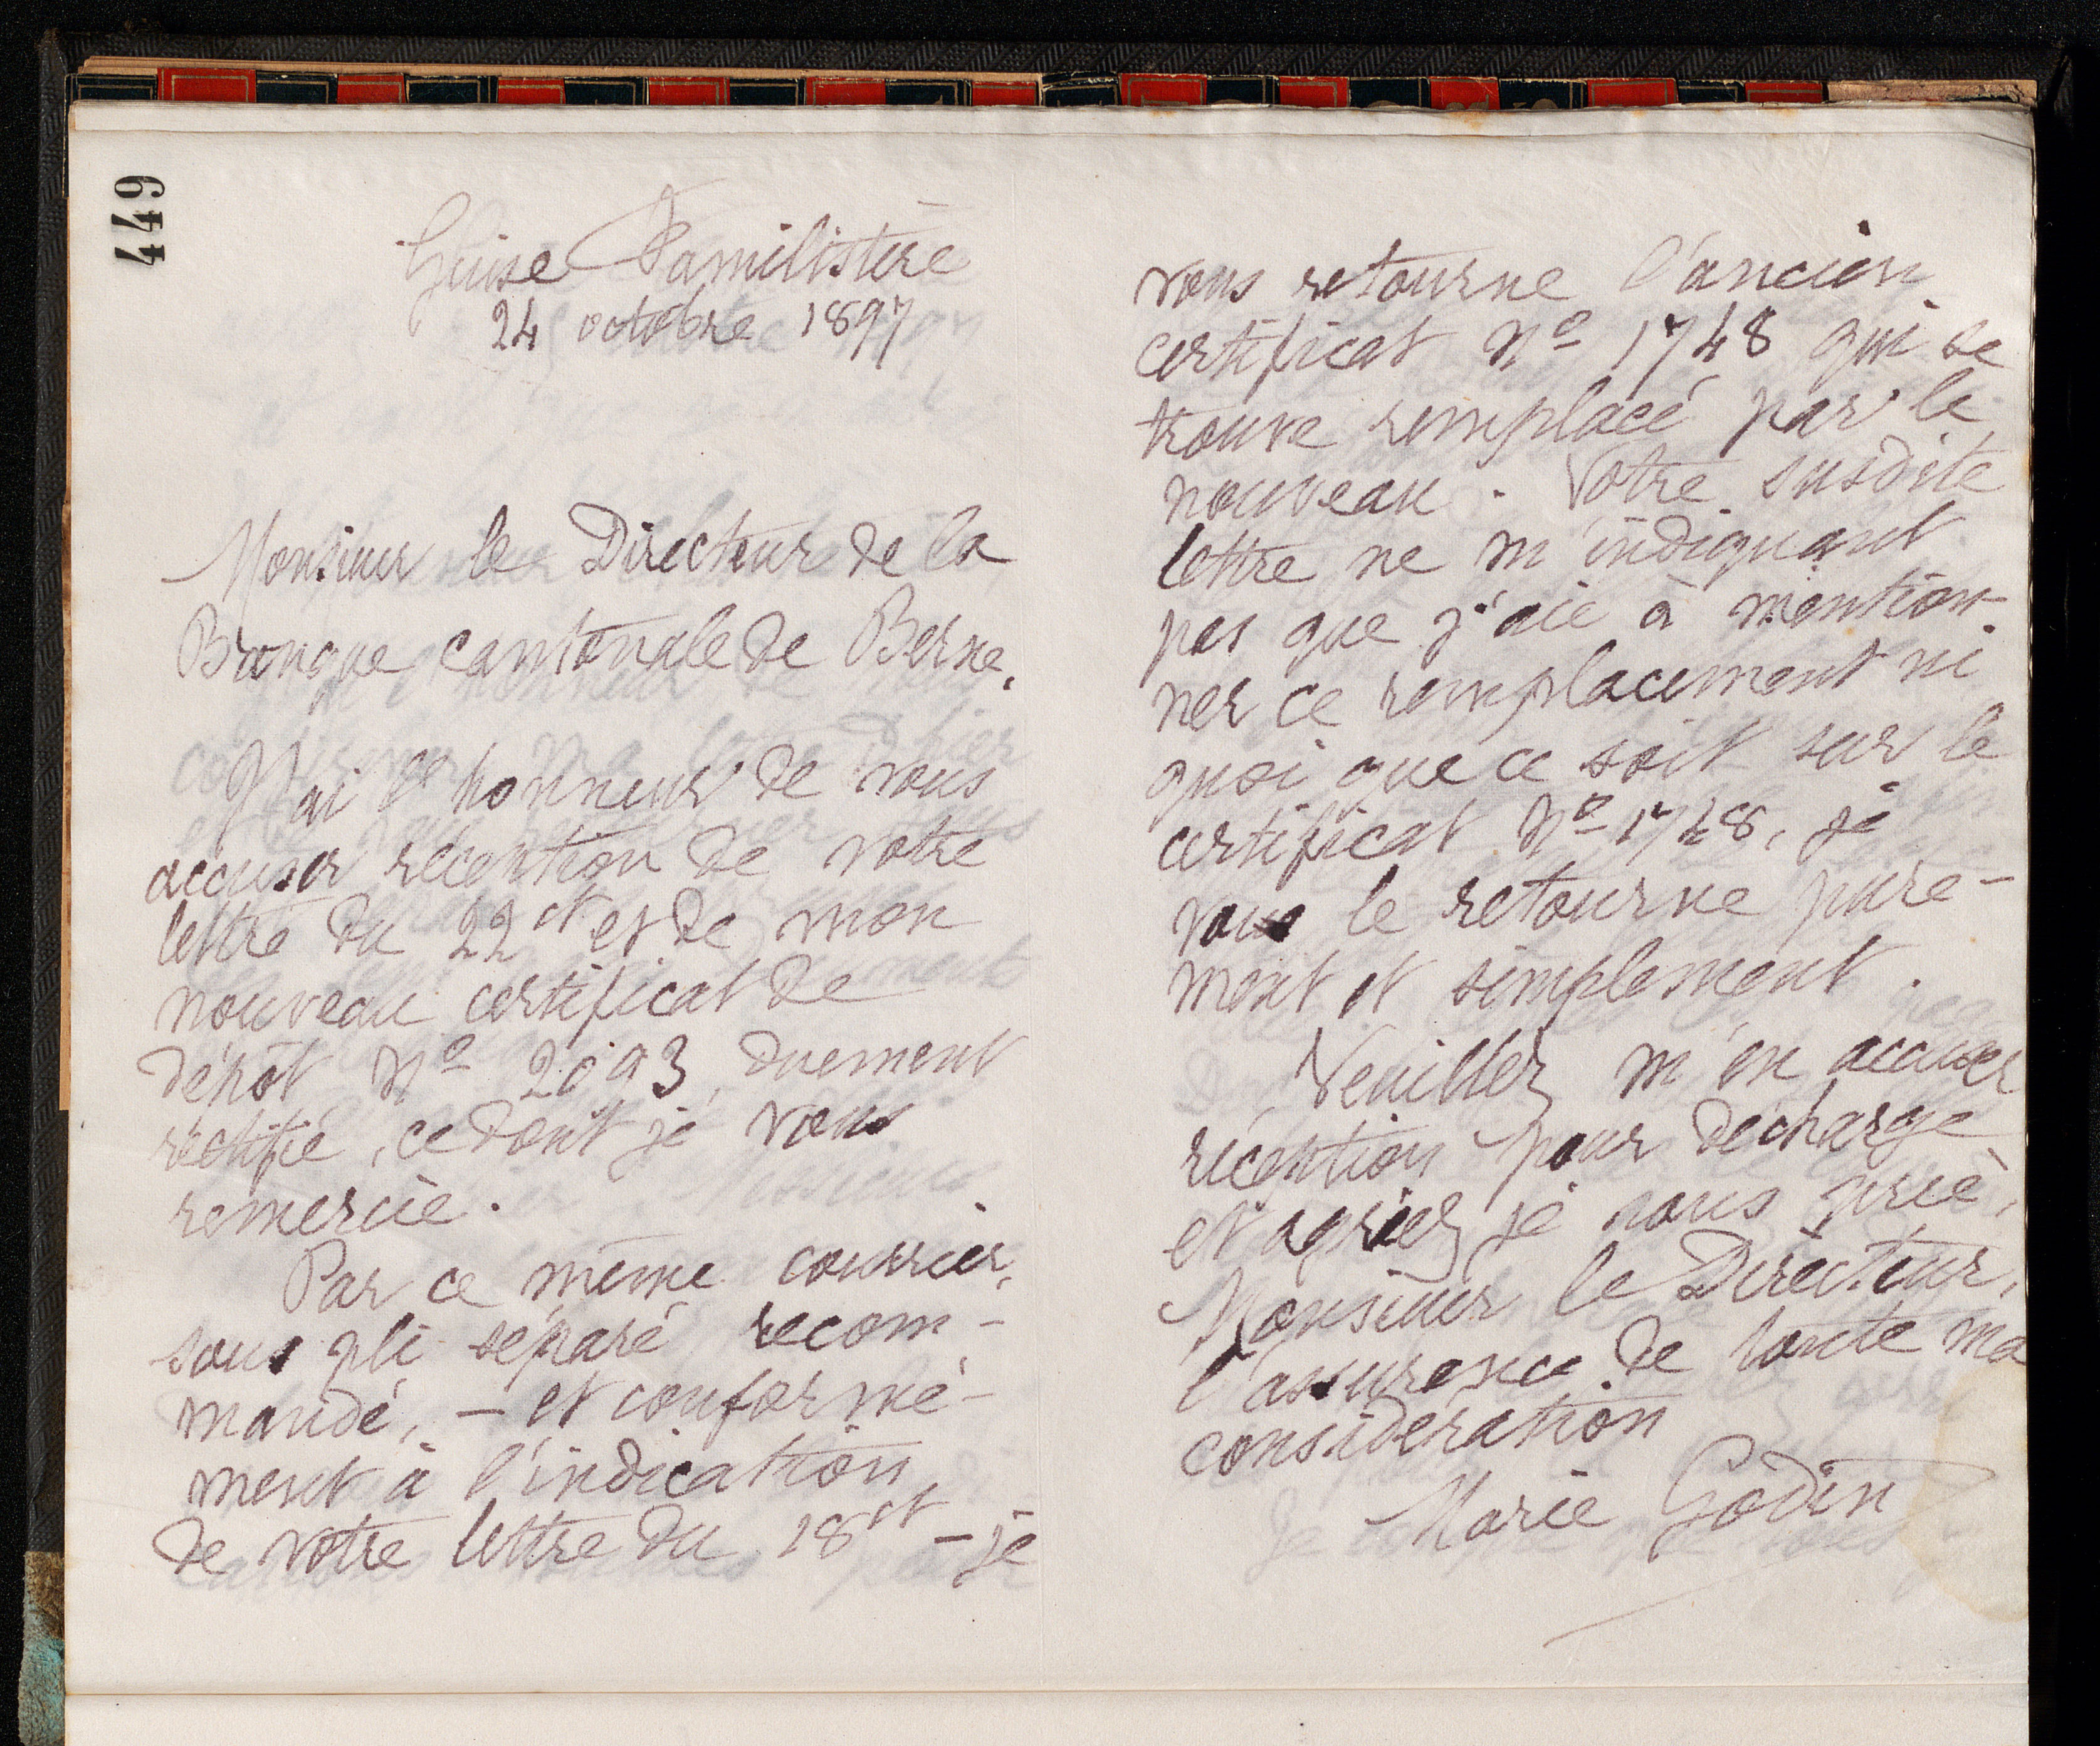 449
Guise Familistère
24 octobre 1897
Monsieur le Directeur de la
Banque cantonale de Berne,
J'ai l'honneur de vous
accuser réception de votre
lettre du 22 ct et de mon
nouveau certificat de
dépôt No 2093, duement
rectifié, ce dont je vous
remercie.
Par ce même courrier,
sous pli séparé recom-
mandé, - et conformé-
ment à l'indication
de votre lettre du 18 ct - je
vous retourne l'ancien
certificat No 1748 qui se
trouve remplacé par le
nouveau. Votre susdite
lettre ne m'indiquant
pas que j'aie à mention-
ner ce remplacement ni
quoi que ce soit sur le
certificat No 1748, je
vous le retourne pure-
ment et simplement.
Veuillez m'en accuser
réception pour décharge
et agréez, je vous prie,
Monsieur le Directeur,
l'assurance de toute ma
considération
Marie Godin